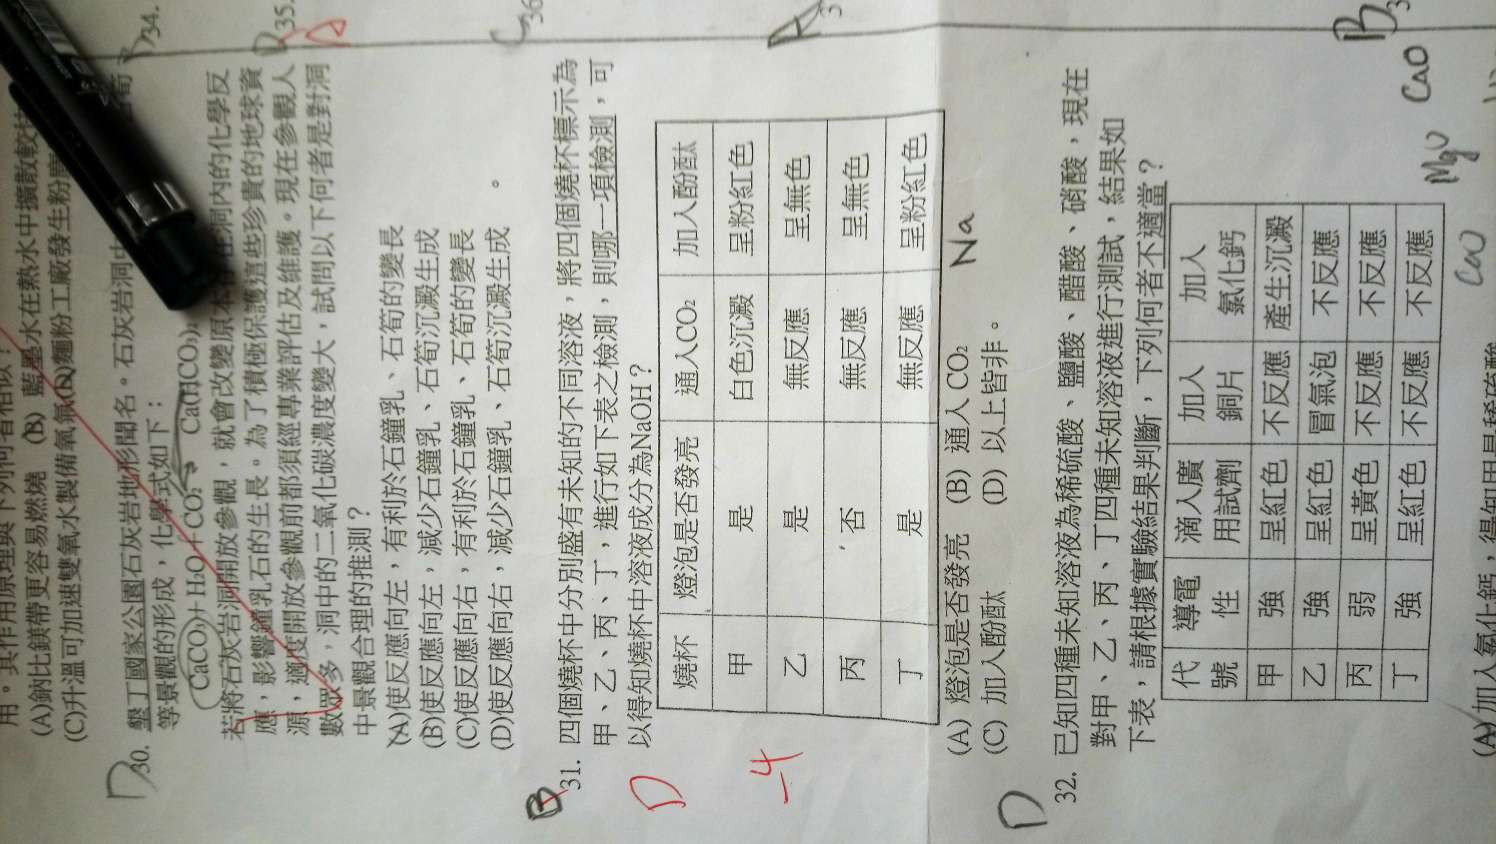 用。其作用原理與下列何者相似？
(A)鈉比鎂帶更容易燃燒 (B) 藍墨水在熱水中擴散較快
(C)升溫可加速雙氧水製備氧氣(D)麵粉工廠發生粉塵
D 30. 墾丁國家公園石灰岩地形聞名。石灰岩洞中
等景觀的形成，化學式如下：
CaCO₃+ H₂O + CO₂ Ca(HCO₃)₂
若將石灰岩洞開放參觀，就會改變原本 在洞內的化學反
應，影響鐘乳石的生長。為了積極保護這些珍貴的地球資
源，適度開放參觀前都須經專業評估及維護。現在參觀人
數眾多，洞中的二氧化碳濃度變大，試問以下何者是對洞
中景觀合理的推測？
(A)使反應向左，有利於石鐘乳、石筍的變長
(B)使反應向左，減少石鐘乳、石筍沉澱生成
(C)使反應向右，有利於石鐘乳、石筍的變長
(D)使反應向右，減少石鐘乳、石筍沉澱生成。
B 31. 四個燒杯中分別盛有未知的不同溶液，將四個燒杯標示為
D 甲、乙、丙、丁，進行如下表之檢測，則哪一項檢測，可
以得知燒杯中溶液成分為NaOH？
燒杯 燈泡是否發亮 通入CO₂ 加入酚酞
甲 是 白色沉澱 呈粉紅色
乙 是 無反應 呈無色
丙 否 無反應 呈無色
丁 是 無反應 呈粉紅色
-4
(A) 燈泡是否發亮 (B) 通入 CO₂ Na
(C) 加入酚酞 (D) 以上皆非。
D 32. 已知四種未知溶液為稀硫酸、鹽酸、醋酸、硝酸，現在
對甲、乙、丙、丁四種未知溶液進行測試，結果如
下表，請根據實驗結果判斷，下列何者不適當？
代號 導電性 滴入廣用試劑 加入銅片 加入氯化鈣
甲 強 呈紅色 不反應 產生沉澱
乙 強 呈紅色 冒氣泡 不反應
丙 弱 呈黃色 不反應 不反應
丁 強 呈紅色 不反應 不反應
MgO CaO
CaO
(A)加入氯化鈣，得知甲是稀硫酸
34.
D 35.
D
C 36
A
B